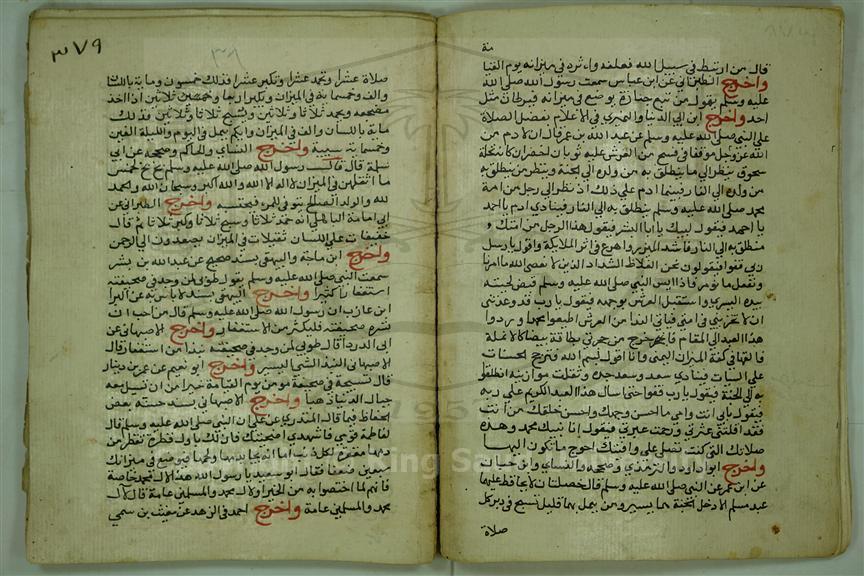 مة
قال من ارتبط في سبيل الله فعلفه واثره في ميزانه يوم القيا
واخرج الطبراني عن ابن عباس سمعت رسول الله صلى الله
عليه وسلم يقول من تبع جنازة يوضع في ميزانه قيراطان مثل
احد واخرج ابن ابي الدنيا والنميري في الاعلام بفضل الصلاة
على النبي صلى الله عليه وسلم عن عبد الله بن عمر قال ان لادم من
الله عز وجل موقفا في فسح من العرش عليه ثوبان اخضران كانه نخلة
سحوق ينظر الى من ينطلق به من ولده الى الجنة وينظر من ينطلق به
من ولده الى النار فبينما ادم على ذلك اذ نظر الى رجل من امة
محمد صلى الله عليه وسلم ينطلق به الى النار فينادي ادم يا احمد
يا احمد فيقول لبيك يا ابا البشر فيقول هذا الرجل من امتك
منطلق به الى النار فاشد الميزر واهرع في اثر الملايكة واقول يا رسل
ربي قفوا فيقولون نحن الغلاظ الشداد الذين لا نعصي الله ما امرنا
ونفعل ما نومر فاذا ايس النبي صلى الله عليه وسلم قبض لحيته
بيده اليسرى واستقبل العرش بوجهه فيقول يا رب قد وعدتني
ان لا تخزيني في امتي فياتي الندا من العرش اطيعوا محمدا وردوا
هذا العبد الى المقام فاخرج من حجزتي بطاقة بيضا كالانملة
فالقها في كفة الميزان اليمنى وانا اقول بسم الله فترجح الحسنات
على السيات فينادي سعد وسعد جده وثقلت موازينه انطلقوا
به الى الجنة فيقول يا رب قفوا حتى اسال هذا العبد الكريم على ربه
فيقول بابي انت وامي ما احسن وجهك واحسن خلقك من انت
فقد اقلتني عثرتي ورحمت عبرتي فيقول انا نبيك محمد وهذه
صلاتك التي كنت تصلي علي وافيتك احوج ما تكون اليها
واخرج ابو داود والترمذي وصححه والنساي وابن حبان
عن ابن عمر عن النبي صلى الله عليه وسلم قال خصلتان لا يحافظ عليهما
عبد مسلم الا دخل الجنة هما يسير ومن يعمل بهما قليل تسبح في دبر كل
صلاة
٣٧٩
صلاة عشرا وتحمد عشرا وتكبر عشرا فذلك خمسون وماية باللسان
والف وخمسماية في الميزان وتكبر اربعا وثلاثين اذا اخذ
مضجعه ويحمد ثلاثا وثلاثين ويسبح ثلاثا وثلاثين فذلك
ماية باللسان والف في الميزان وايكم يعمل في اليوم والليلة الفين
وخمسماية سيية واخرج النساي والحاكم وصححه عن ابي
سلمة قال قال رسول الله صلى الله عليه وسلم بخ بخ لخمس
ما اثقلهن في الميزان لا اله الا الله والله اكبر وسبحان الله والحمد
لله والولد الصالح يتوفى للمرء فيحتسبه واخرج الطبراني عن
ابي امامة الباهلي انه حمد ثلاثا وسبح ثلاثا وكبر ثلاثا ثم قال
خفيفات على اللسان ثقيلات في الميزان يصعدون الى الرحمن
واخرج ابن ماجة والبيهقي بسند صحيح عن عبد الله بن بشر
سمعت النبي صلى الله عليه وسلم يقول طوبى لمن وجد في صحيفته
استغفارا كثيرا واخرج البيهقي بسند لا باس به عن البرا
ابن عازب ان رسول الله صلى الله عليه وسلم قال من احب ان
تسره صحيفته فليكثر من الاستغفار واخرج الاصبهاني عن
ابي الدرداء قال طوبى لمن وجد في صحيفته نبذا من استغفار قال
الاصبهاني النبذ الشي اليسير واخرج ابو نعيم عن عمر بن دينار
قال تسبيحة في صحيفة مومن يوم القيامة خير من ان تسيل معه
جبال الدنيا ذهبا واخرج الاصبهاني بسند حسنه بعض
الحفاظ فيما قال المنذري عن علي ان النبي صلى الله عليه وسلم قال
لفاطمة قومي فاشهدي اضحيتك فان لك باول قطرة تقطر من
دمها مغفرة لكل ذنب اما انه يجاء بدمها ولحمها فيوضع في ميزانك
سبعين ضعفا فقال ابو سعيد يا رسول الله هذا لال محمد خاصة
فانهم لما اختصوا به من الخير او لال محمد والمسلمين عامة قال لال
محمد والمسلمين عامة واخرج احمد في الزهد عن مغيث بن سمي